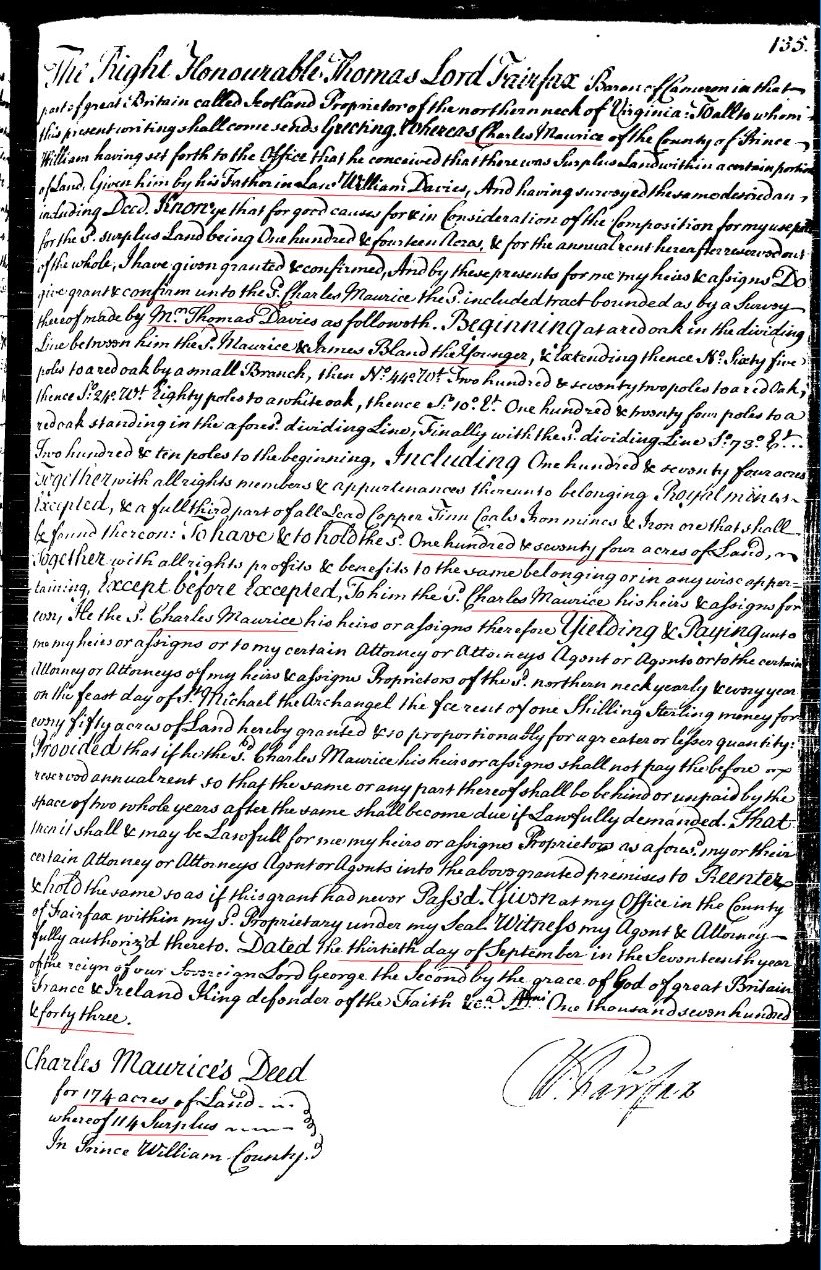 135.
The Right Honourable Thomas Lord Fairfax Baron of Cameron in that
part of great Britain called Scotland Proprietor of the northern neck of Virginia: To all to whom
this present writing shall come sends Greeting. Whereas Charles Maurice of the County of Prince
William having set forth to the Office that he conceived that there was Surplus Land within a certain portion
of Land, Given him by his Father in Law William Davies, And having surveyed the same desired an
including Deed. Know ye that for good causes for & in Consideration of the Composition for my use paid
for the sd. surplus Land being One hundred & fourteen Acres, & for the annual rent hereafter reserved out
of the whole, I have given granted & confirmed, And by these presents for me my heirs & assigns Do
give grant & confirm unto the sd. Charles Maurice the sd. included tract bounded as by a Survey
thereof made by Mr. Thomas Davies as followeth. Beginning at a red oak in the dividing
Line between him the sd. Maurice & James Bland the Younger, & Extending thence No. Sixty five
poles to a red oak by a small Branch, then No. 44o. Wt. Two hundred & seventy two poles to a red Oak,
thence So. 24o. Wt. Eighty poles to a white oak, thence So. 10o. Et. One hundred & twenty four poles to a
red oak standing in the aforesd. dividing Line, Finally with the sd. dividing Line So. 73o. Et.
Two hundred & ten poles to the beginning, Including One hundred & seventy four acres
Together with all rights members & appurtenances thereunto belonging Royal mines
Excepted, & a full third part of all Lead Copper Tinn Coals Iron mines & Iron ore that shall
be found thereon: To have & to hold the sd. One hundred & seventy four acres of Land,
Together with all rights profits & benefits to the same belonging or in any wise apper=
taining, Except before Excepted, To him the sd. Charles Maurice his heirs & assigns for
ever, He the sd. Charles Maurice his heirs or assigns therefore Yielding & Paying unto
me my heirs or assigns or to my certain Attorney or Attorneys Agent or Agents or to the certain
Attorney or Attorneys of my heirs & assigns Proprietors of the sd. northern neck yearly & every year
on the feast day of St. Michael the Archangel the fee rent of one Shilling Sterling money for
every fifty acres of Land hereby granted & so proportionably for a greater or lesser quantity:
Provided that if he the sd. Charles Maurice his heirs or assigns shall not pay the before
reserved annual rent so that the same or any part thereof shall be behind or unpaid by the
space of two whole years after the same shall become due if Lawfully demanded. That
then it shall & may be Lawfull for me my heirs or assigns Proprietors as aforesd. my or their
certain Attorney or Attorneys Agent or Agents into the above granted premises to Reenter
& hold the same so as if this grant had never Pass'd. Given at my Office in the County
of Fairfax within my sd. Proprietary under my Seal. Witness my Agent & Attorney
fully authoriz'd thereto. Dated the thirtieth day of September in the Seventeenth year
of the reign of our Sovereign Lord George the Second by the grace of God of great Britain
France & Ireland King defender of the Faith &ca. One thousand seven hundred
& forty three.
W. Fairfax
Charles Maurice's Deed
for 174 acres of Land
whereof 114 Surplus
In Prince William County.